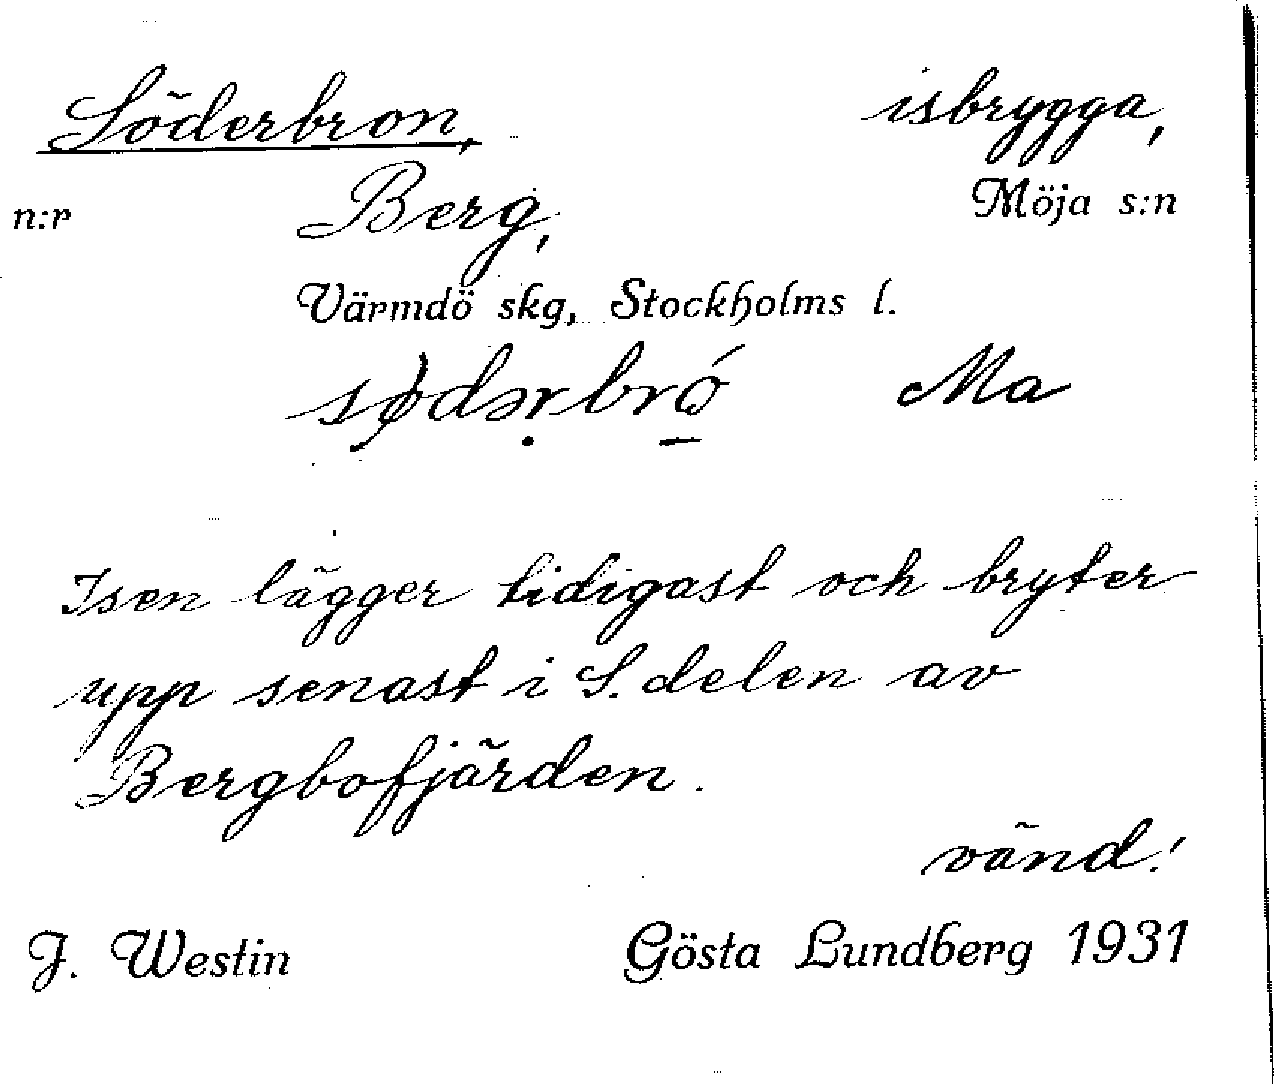 Söderbron, isbrygga,
n:r Berg, Möja s:n
Värmdö skg, Stockholms l.
sødərbró Ma
Isen lägger tidigast och bryter
upp senast i S. delen av
Bergbofjärden.
vänd!
J. Westin Gösta Lundberg 1931